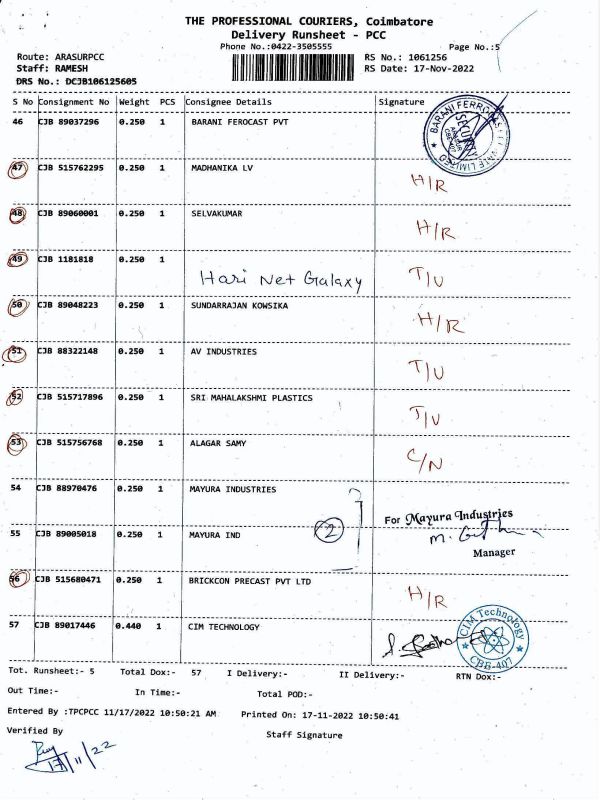 THE PROFESSIONAL COURIERS, Coimbatore
Delivery Runsheet - PCC
Phone No.:0422-3505555
Page No.:5
Route: ARASURPCC
RS No.: 1061256
Staff: RAMESH
RS Date: 17-Nov-2022
DRS No.: DCJB106125605
S No Consignment No Weight PCS Consignee Details Signature
46 CJB 89037296 0.250 1 BARANI FEROCAST PVT
SECURITY
47 CJB 515762295 0.250 1 MADHANIKA LV H/R
48 CJB 89060001 0.250 1 SELVAKUMAR H/R
49 CJB 1181818 0.250 1 Hari Net Galaxy T/U
50 CJB 89048223 0.250 1 SUNDARRAJAN KOWSIKA H/R
51 CJB 88322148 0.250 1 AV INDUSTRIES T/U
52 CJB 515717896 0.250 1 SRI MAHALAKSHMI PLASTICS T/U
53 CJB 515756768 0.250 1 ALAGAR SAMY C/N
54 CJB 88970476 0.250 1 MAYURA INDUSTRIES
For Mayura Industries
55 CJB 89005018 0.250 1 MAYURA IND 2
Manager
56 CJB 515680471 0.250 1 BRICKCON PRECAST PVT LTD H/R
57 CJB 89017446 0.440 1 CIM TECHNOLOGY
CIM Technology
CBE-407
Tot. Runsheet:- 5 Total Dox:- 57 I Delivery:- II Delivery:- RTN Dox:-
Out Time:- In Time:- Total POD:-
Entered By :TPCPCC 11/17/2022 10:50:21 AM Printed On: 17-11-2022 10:50:41
Verified By Staff Signature
17/11/22